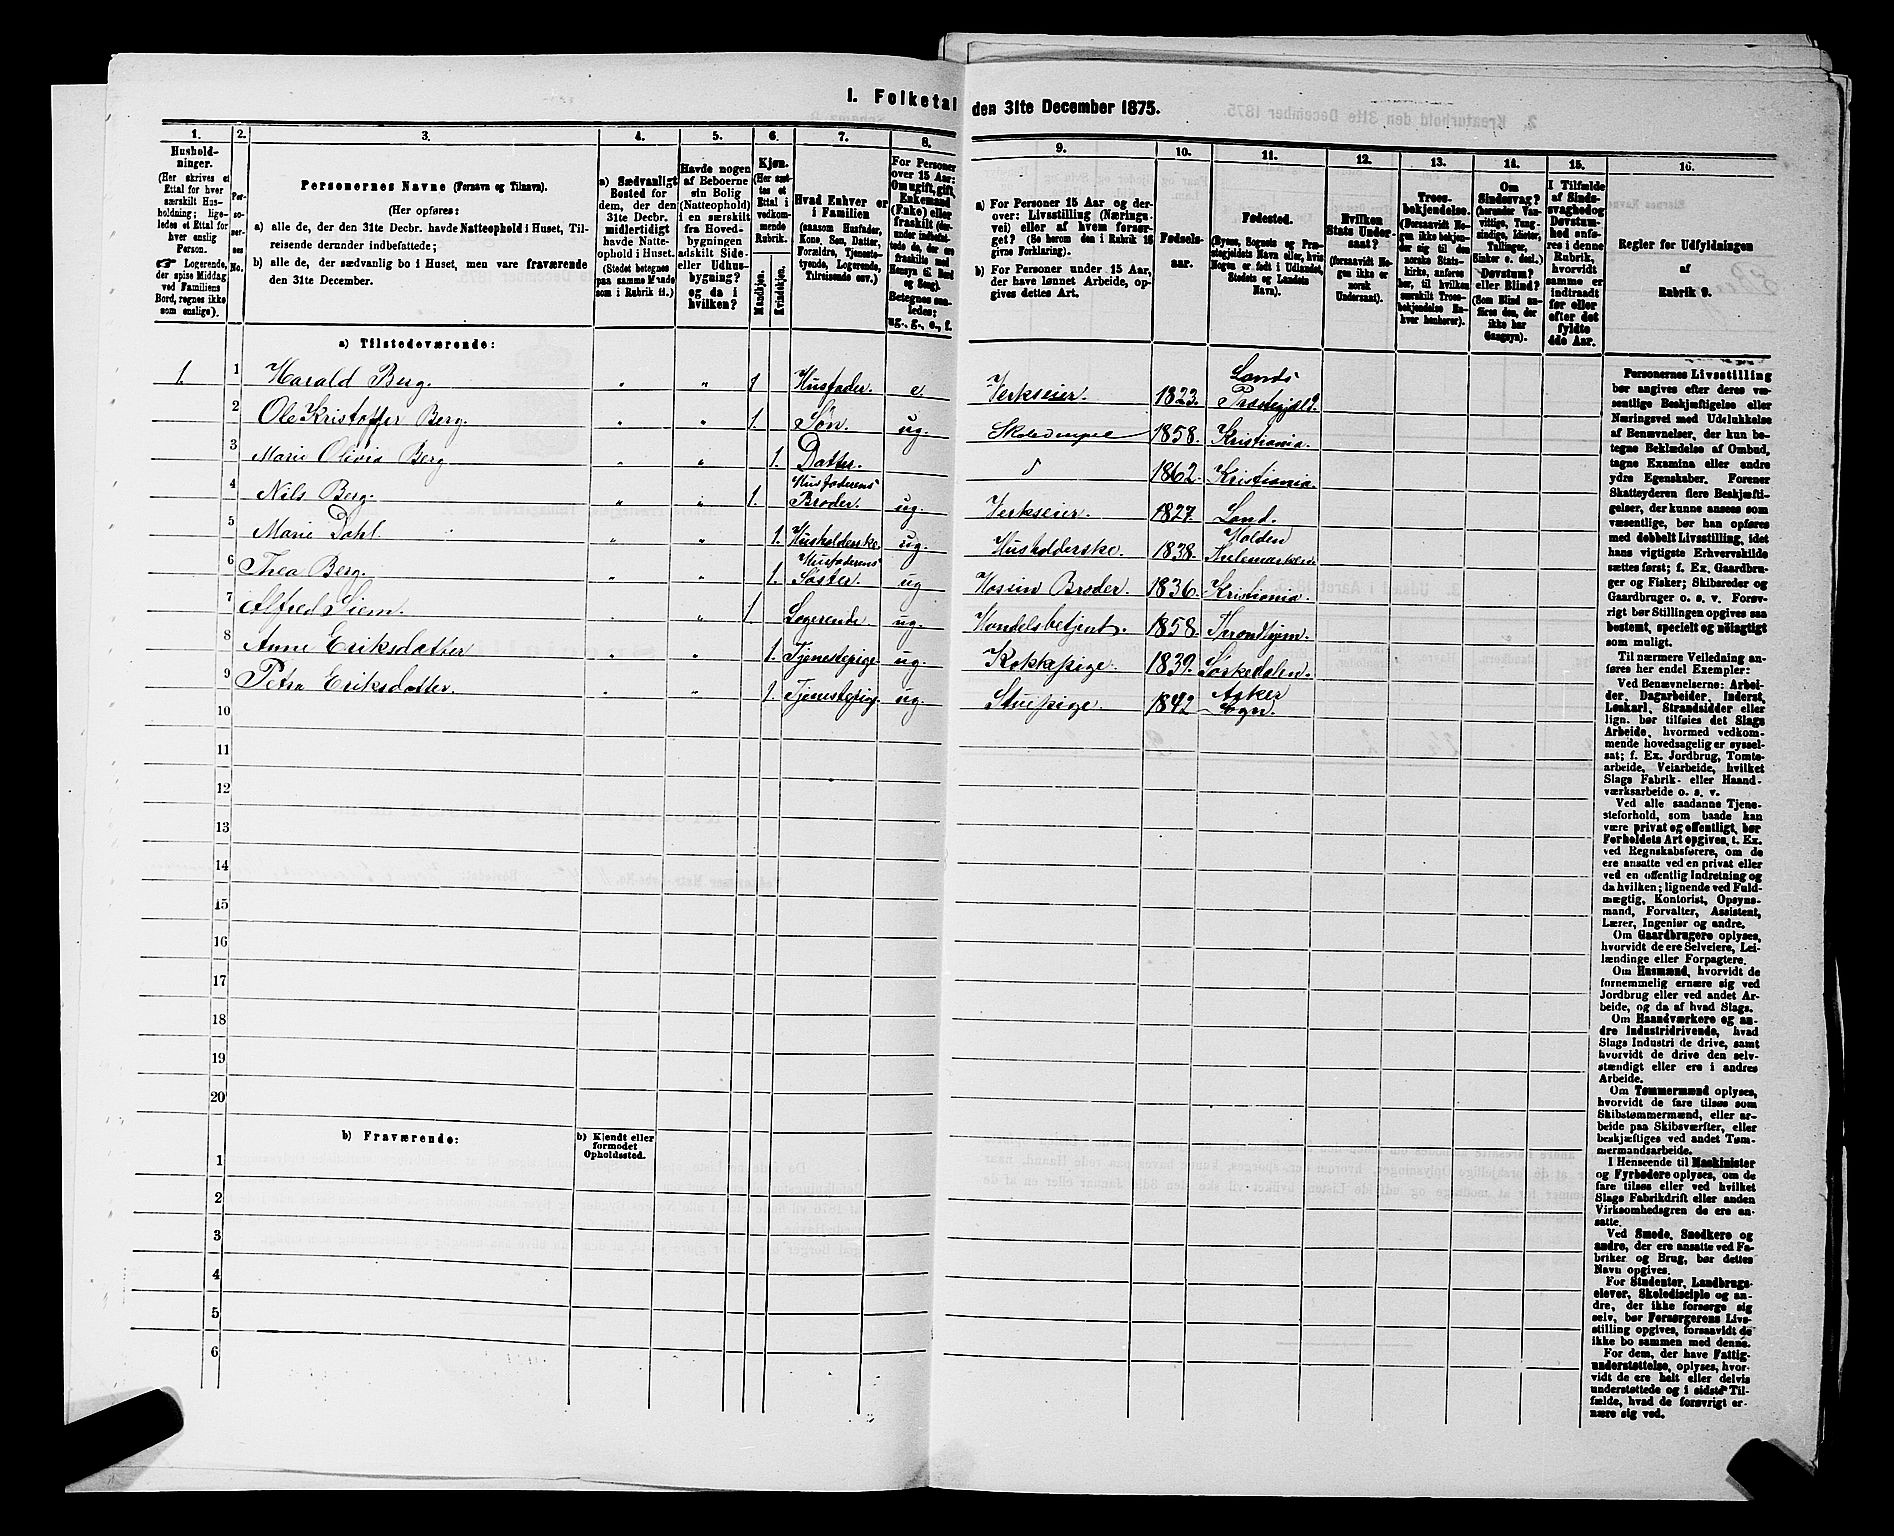 I. Folketal den 31te December 1875.
1.
Hushold-
ninger.
(Her skrives et
Ettal for hver
særskilt Hus-
holdning; lige-
ledes et Ettal for
hver enslig
Person.
☞ Logerende,
der spise Middag
ved Familiens
Bord, regnes ikke
som enslige).
2.
Per-
so-
ner-
nes
No.
3.
Personernes Navne (Fornavn og Tilnavn).
(Her opføres:
a) alle de, der den 31te Decbr. havde Natteophold i Huset, Til-
reisende derunder indbefattede;
b) alle de, der sædvanlig bo i Huset, men vare fraværende
den 31te December.
4.
a) Sædvanligt
Bosted for
dem, der den
31te Decbr.
midlertidigt
havde Natte-
ophold i Huset.
(Stedet betegnes
paa samme Maade
som i Rubrik 11.)
5.
Havde nogen
af Beboerne
sin Bolig
(Natteophold)
i en særskilt
fra Hoved-
bygningen
adskilt Side-
eller Udhus-
bygning?
og da i
hvilken?
6.
Kjøn.
(Her sæt-
tes et
Ettal i
vedkom-
mende
Rubrik.
Mandkjøn.
Kvindekjøn.
7.
Hvad Enhver er
i Familien
(saasom Husfader,
Kone, Søn, Datter,
Forældre, Tjeneste-
tyende, Logerende,
Tilreisende osv.)
8.
For Personer
over 15 Aar:
Om ugift, gift,
Enkemand
(Enke) eller
fraskilt
Betegnes saa-
ledes:
ug., g., e., f.
9.
a) For Personer 15 Aar og der-
over: Livsstilling (Nærings-
vei) eller af hvem forsør-
get? (Se herom den i Rubrik 16
givne Forklaring).
b) For Personer under 15 Aar,
der have lønnet Arbeide, op-
gives dettes Art.
10.
Fødsels-
aar.
11.
Fødested.
(Byens, Sognets og Præ-
stegjeldets Navn eller, hvis
Nogen er født i Udlandet,
Stedets og Landets
Navn).
12.
Hvilken
Stats Under-
saat?
(forsaavidt No-
gen ikke er
norsk
Undersaat).
13.
Troes-
bekjendelse.
(Forsaavidt No-
gen ikke bekjen-
der sig til den
norske Stats-
kirke, anføres
her, til hvilken
særskilt Troes-
bekjendelse En-
hver henhører).
14.
Om
Sindssvag?
(herunder Van-
vittige, Tung-
sindige, Idioter,
Tullinger,
Sinker o. desl.)
Døvstum?
eller Blind?
(Som Blind an-
føres den, der
ikke har
Gangsyn).
15.
I Tilfælde
af Sinds-
svaghed og
Døvstum-
hed anfø-
res i denne
Rubrik,
hvorvidt
samme er
indtraadt
før eller
efter det
fyldte
4de Aar.
16.
Regler for Udfyldningen
af
Rubrik 9.
a) Tilstedeværende:
1. 1 Harald Berg. " " 1 Husfader. e. Verkseier. 1823. Lands Præstegjæld.
2 Ole Kristoffer Berg. " " 1. Søn. ug. 1858. Kristiania.
3 Marie Olivia Berg " " 1. Datter. 1862. Kristiania.
4 Nils Berg. " " 1. Husfaderens Broder. ug. Verkseier. 1827. Land.
5 Marie Dahl. " " 1. Husholderske. ug. Husholderske. 1838. Holden Thelemarken.
6 Thea Berg. " " 1. Husfaderens Søster. ug Hos sin Broder. 1836. Kristiania.
7 Alfred Siem. " " 1 Logerende. ug. Handelsbetjent. 1858. Throndhjem.
8 Anne Eriksdatter " " 1. Tjenestepige. ug. Kokkepige. 1839. Sørkedalen.
9 Petra Eriksdatter. " " 1. Tjenestepige. ug. Stuepige. 1842 Asker Sogn.
10
11
12
13
14
15
16
17
18
19
20
b) Fraværende:
b) Kjendt eller
formodet
Opholdssted.
1
2
3
4
5
6
Personernes Livsstilling
bør angives efter deres væ-
sentlige Beskjæftigelse eller
Næringsvei med Udelukkelse
af Benævnelser, der kun be-
tegne Beklædelse af Ombud,
tagne Examina eller andre
ydre Egenskaber. Forener
Skatteyderen flere Beskjæfti-
gelser, der kunne ansees som
væsentlige, bør han opføres
med dobbelt Livsstilling, idet
hans vigtigste Erhvervskilde
sættes først; f. Ex. Gaardbru-
ger og Fisker; Skibsreder og
Gaardbruger o. s. v. Forøv-
rigt bør Stillingen opgives saa
bestemt, specielt og nøiagtigt
som muligt.
Til nærmere Veiledning an-
føres her endel Exempler:
Ved Benævnelserne: Arbei-
der, Dagarbeider, Inderst,
Løskarl, Strandsidder eller
lign. bør tilføies det Slags
Arbeide, hvormed vedkom-
mende hovedsagelig er syssel-
sat; f. Ex. Jordbrug, Tomte-
arbeide, Veiarbeide, hvilket
Slags Fabrik- eller Haand-
værksarbeide o. s. v.
Ved alle saadanne Tjene-
steforhold, som baade kan
være privat og offentligt, bør
Forholdets Art opgives, t. Ex.
ved Regnskabsførere, om de
ere ansatte ved en privat eller
ved en offentlig Indretning og
da hvilken; lignende ved Fuld-
mægtig, Kontorist, Opsyns-
mand, Forvalter, Assistent,
Lærer, Ingeniør og andre.
Om Gaardbrugere oplyses,
hvorvidt de ere Selveiere, Lei-
lændinge eller Forpagtere.
Om Husmænd, hvorvidt de
fornemmelig ernære sig ved
Jordbrug eller ved andet Ar-
beide, og da af hvad Slags.
Om Haandværkere og an-
dre Industridrivende, hvad
Slags Industri de drive, samt
hvorvidt de drive den selv-
stændigt eller ere i andres
Arbeide.
Om Tømmermænd oplyses,
hvorvidt de fare tilsøs som
Skibstømmermænd, eller ar-
beide paa Skibsværfter, eller
beskjæftiges ved andet Tøm-
mermandsarbeide.
I Henseende til Maskinister
og Fyrbødere oplyses, om de
fare tilsøs eller ved hvilket
Slags Fabrikdrift eller anden
Virksomhedsgren de ere an-
satte.
Ved Smede, Snedkere og
andre, der ere ansatte ved Fa-
briker og Brug, bør dettes
Navn opgives.
For Studenter, Landbrugs-
elever, Skoledisciple og an-
dre, der ikke forsørge sig
selv, bør Forsørgerens Livs-
stilling opgives, forsaavidt de
ikke bo sammen med denne.
For dem, der have Fattig-
understøttelse, oplyses, hvor-
vidt de ere helt eller delvis
understøttede og i sidste Til-
fælde, hvad de forøvrigt er-
nære sig ved.